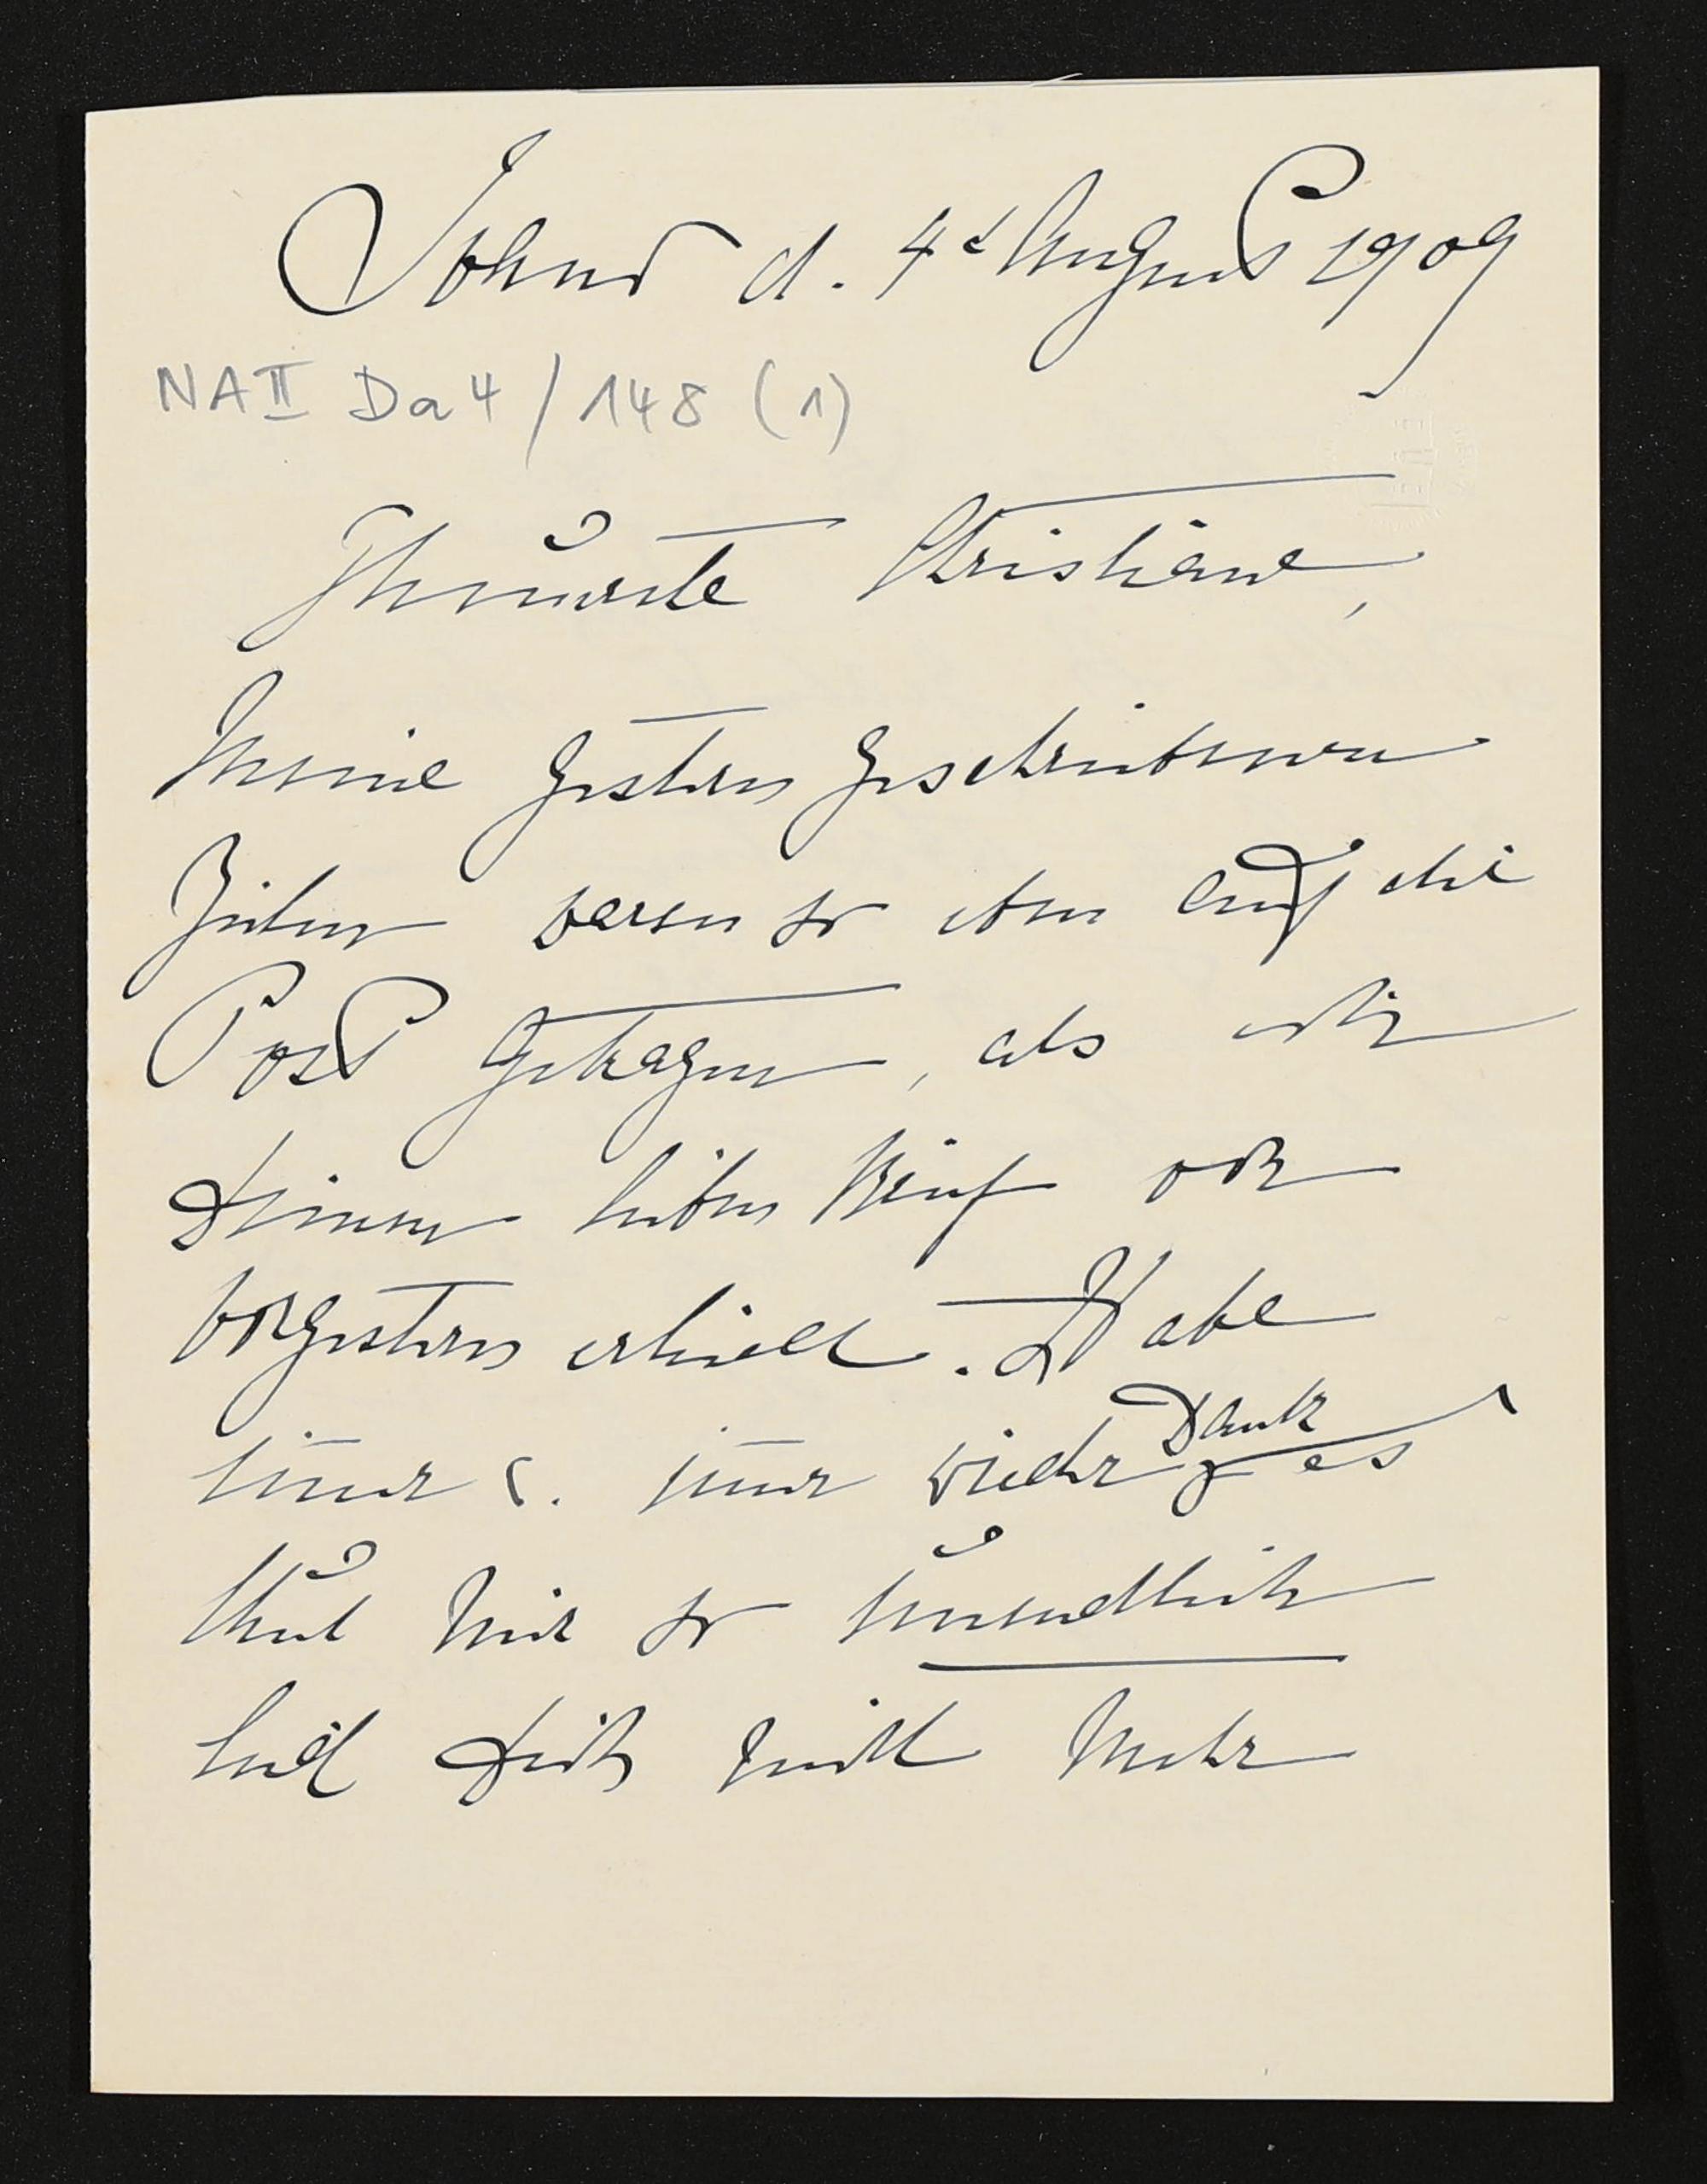 d. 4t August 1909
NA II Da 4 / 148 (1)
Theuerste Christiane,
Meine gestern geschriebenen
Zeilen waren so eben auf die
Post getragen, als ich
Deinen lieben Brief von
vorgestern erhielt. Habe
immer u. immer wieder Dank es
thut mir so unendlich
leid Dich nicht mehr